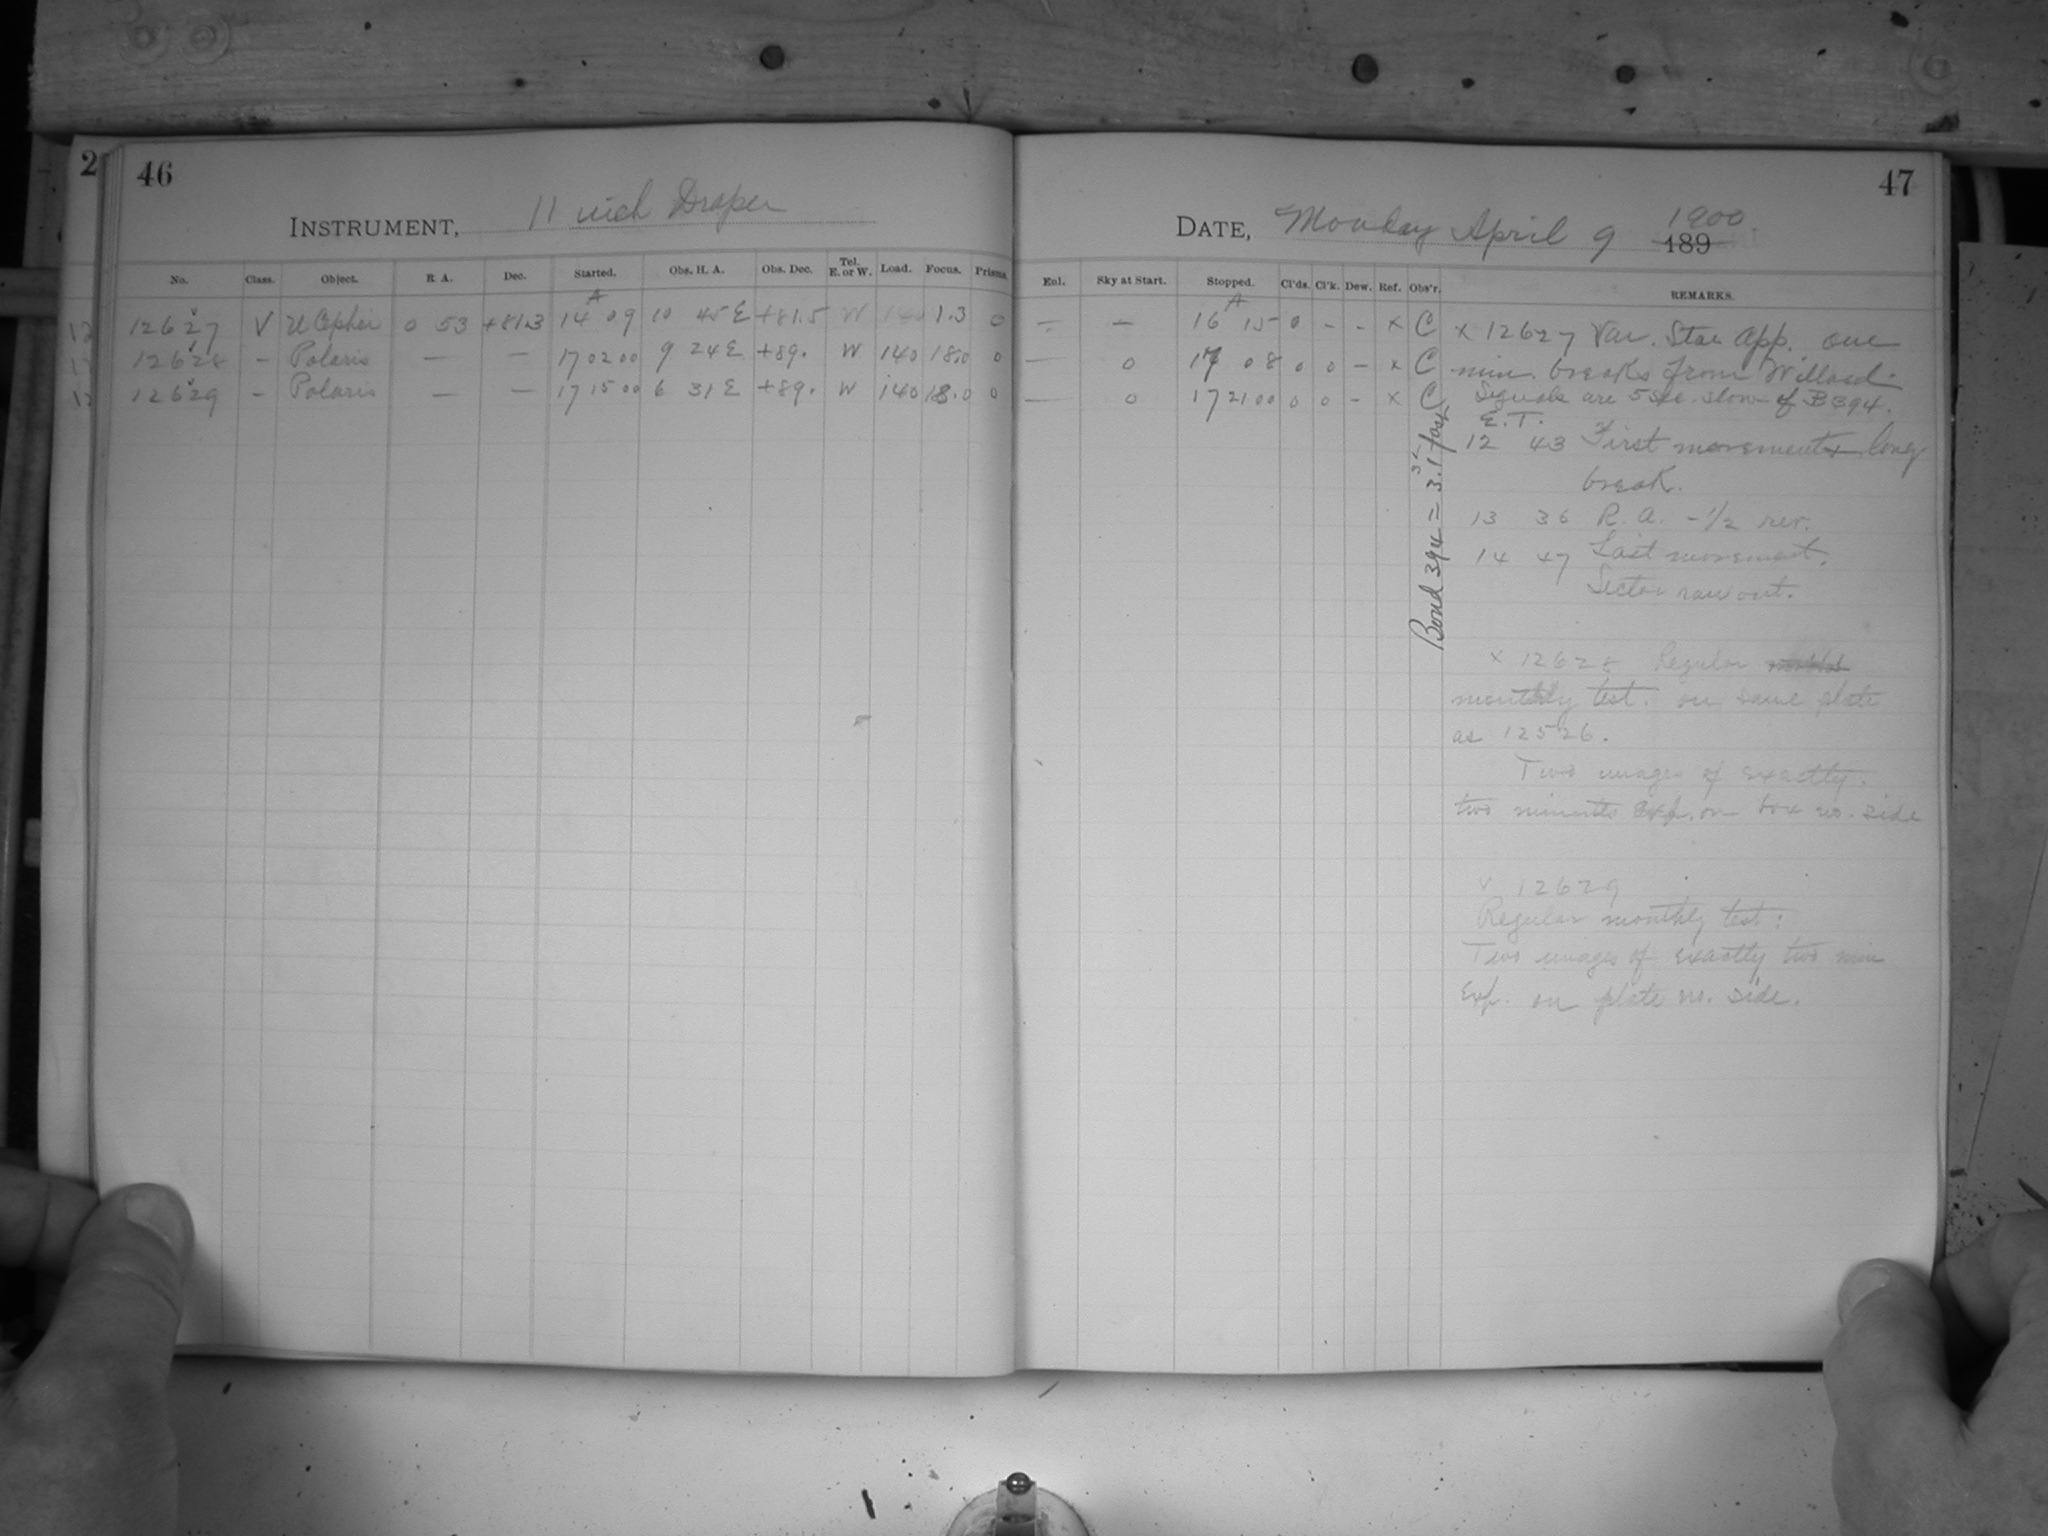 2
46
INSTRUMENT, 11 inch Draper
No. Class. Object. R. A. Dec. Started. Obs. H. A. Obs. Dec. Tel. E. or W. Load. Focus. Prisms.
12627 V U Cephei 0 53 +81.3 14 09 A 10 45 E +81.5 W 140 1.3 0
12628 – Polaris — — 17 02 00 9 24 E +89. W 140 18.0 0
12629 – Polaris — — 17 15 00 6 31 E +89. W 140 18.0 0
47
DATE, Monday April 9 1900
189
Enl. Sky at Start. Stopped. Cl'ds. Cl'k. Dew. Ref. Obs'r. REMARKS.
– – 16 15 A 0 - - x C
— 0 17 08 0 0 – x C
— 0 17 21 00 0 0 - x C
Bond 394 = 3.1 fast
x 12627 Var. Star App. one
min. breaks from Willard.
Signals are 5 sec. slow of B394.
E. T.
12 43 First movement long
break.
13 36 R. A. -1/2 rev.
14 47 Last movement.
Sector ran out.
x 12628 Regular
monthly test. on same plate
as 12526.
Two images of exactly
two minutes Exp. on box no. side
x 12629
Regular monthly test:
Two images of exactly two min
Exp. on plate no. side.